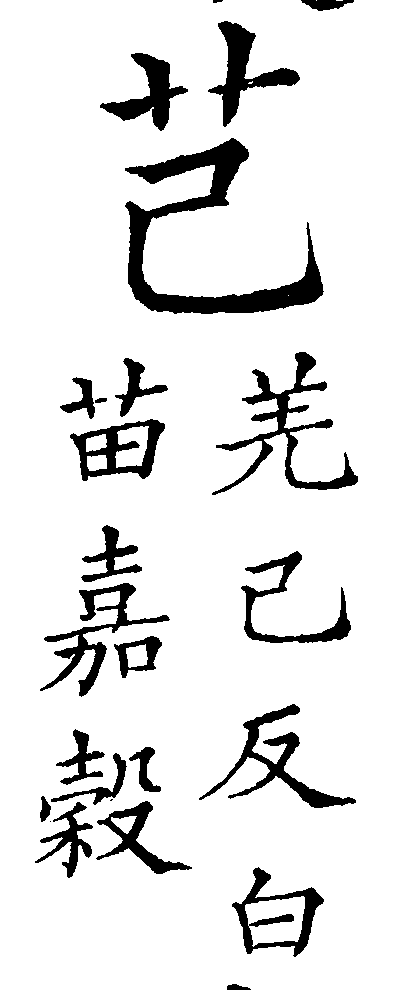 芑
羌己反白
苗嘉穀